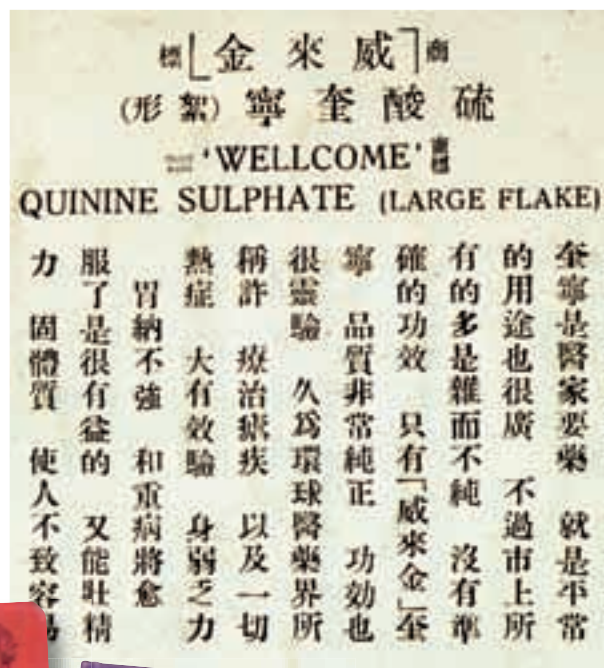 商「威來金」標
硫酸奎寧(絮形)
'WELLCOME' 商標
QUININE SULPHATE (LARGE FLAKE)
奎寧是醫家要藥 就是平常
的用途也很廣 不過市上所
有的多是雜而不純 沒有準
確的功效 只有「威來金」奎
寧 品質非常純正 功効也
很靈驗 久爲環球醫藥界所
稱許 療治瘧疾 以及一切
熱症 大有效驗 身弱乏力
胃納不強 和重病將愈
服了是很有益的 又能壯精
力 固體質 使人不致容易